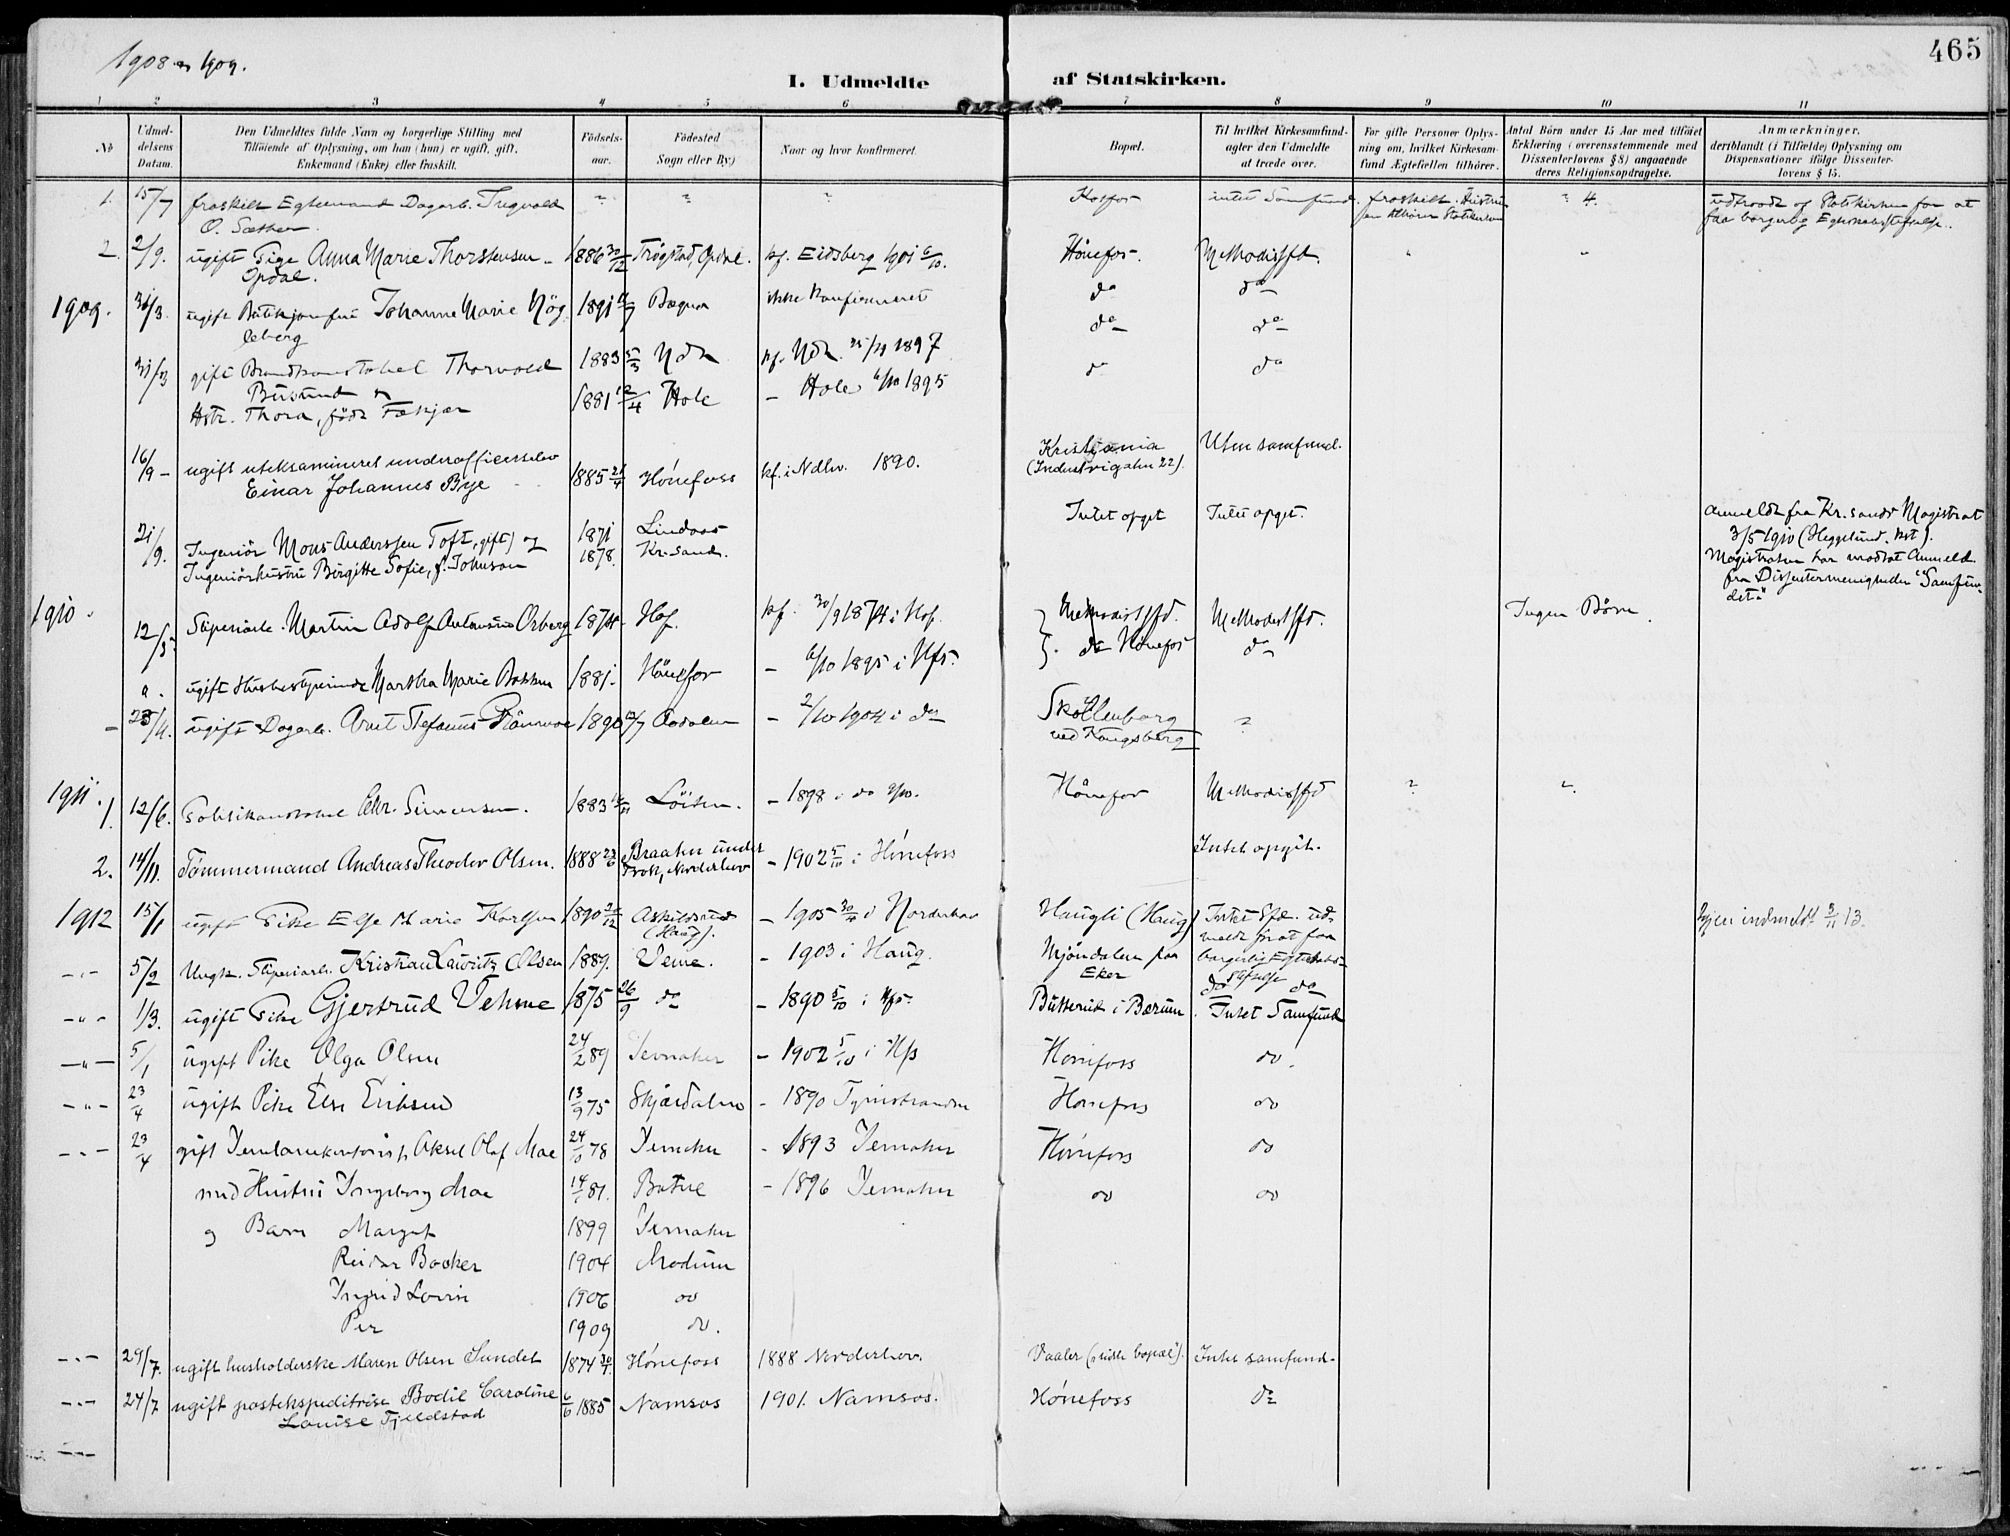 1908 og 1909.
465
I. Udmeldte af Statskirken.
1 2 3 4 5 6 7 8 9 10 11
No
Udmeldelsens Datum.
Den Udmeldtes fulde Navn og borgerlige Stilling med Tilføiende af Oplysning, om han (hun) er ugift, gift, Enkemand (Enke) eller fraskilt.
Fødselsaar.
Fødested Sogn eller By)
Naar og hvor konfirmeret.
Bopæl.
Til hvilket Kirkesamfund agter den Udmeldte at træde over.
For gifte Personer Oplysning om, hvilket Kirkesamfund Ægtefællen tilhører.
Antal Børn under 15 Aar med tilføiet Erklæring (overensstemmende med Dissenterlovens § 8) angaaende deres Religionsopdragelse.
Anmærkninger, deriblandt (i Tilfælde) Oplysning om Dispensationer ifølge Dissenterlovens § 15.
1. 15/7 fraskilt Egtemand Dagarb. Ingvald " " " intet Samfund. fraskilt. " 4. udtraadt af Statskirken for at
O. Sæther faa borgerlig
2. 2/9. ugift Pige Anna Marie Thorstensen 1886 30/12 Trøgstad, Opdal. kf. Eidsberg 1901 6/10. Hønefos. Methodistsfd. " "
Opdal.
1909. 31/3. ugift Johanne Marie Nøg 1891 Bagn ikke konfirmeret do do
leberg do do
31/3 gift Brandkonstabel Thorvald 1883 5/3 Ndr. kf. Ndr. 1897 do do
Busund og
Hstr. Thora, født 1881 12/4 Hole – Hole 6/10 1895
16/9 – ugift uteksamineret underofficerselev 1885 21/4 Hønefoss kf. i Ndhv. 1890. Kristiania Uten samfund.
Einar Johannes Bye (Industrigaten 22).
21/9. Ingeniør Mons Anderssen Toft, gift) og 1871 Lindaas Intet opget Intet opget. Anmeldt fra Kr.sands Magistrat
Ingeniørhustru Birgitte Sofie, f. Johnson 1878. Kr.sand. 3/5 1910 (Heggelund, kst).
Magistraten har modtat Anmeld.
fra Dissentermenigheden "Samfundet."
1910. 12/3 Sliperiarb. Martin Adolf Antonius Orberg 1874 Hof. kf. 30/9 i Hof. Methodistsfd. Methodistsfd. Ingen Børn.
" ugift Husbestyrerinde Martha Marie Bakken 1881. Hønefos – 6/10 1895 i Hfs. do Hønefos do
– 25/4. ugift Dagarb. Arnt Stefanus 1890 Aadalen – 2/10 1904 i do Skollenborg "
ved Kongsberg
1911. 1. 12/6. Politikonstabel Chr. Simensen. 1883 Løiten. – 1898 i do Hønefos Methodistsfd " "
2. 14/11. Tømmermand Andreas Theodor Olsen. 1888 23/6 Braaten under – 1902 5/10 i Hønefoss Intet opgit.
Norderhov
1912 15/1 ugift Pike Else Marie Karlsen 1890 Askildsrud – 1905 i Norderhov Haugli (Haug) Intet Sfd. ud- Igjen indmeldt 5/11 13.
(Haug). meldt for at faa
-"- 5/2 Ungk. Sliperiarb. Kristian Lauritz Olsen 1889. Veme. – 1903 i Haug. Mjøndalen paa borgerlig
Eker
-"- 1/3. ugift Pike Gjertrud Vehme 1875 26/9 do – 1890 5/10 i Hfs. Butterud i Bærum Intet Samfund
-"- 5/1 ugift Pike Olga Olsen 24/2 89 Jevnaker – 1902 5/10 i Hfs Hønefoss do.
-"- 23/4 ugift Pike Else Eriksen 13/9 75 Skjærdalen – 1890 Tyristranden Hønefoss do
-"- 23/4 gift Aksel Olaf Moe 24/10 78 Jevnaker – 1893 Jevnaker Hønefoss do
med Hustru Ingeborg Moe 14/ 81. – 1896 Jevnaker do do
og Barn Margit 1899 Jevnaker
Reidar 1904 Modum
Ingrid Lovise 1906 do
Per 1909 do.
-"- 29/7. ugift husholderske Maren Olsen Sundet 1874 Hønefoss 1888 Norderhov. Vaaler (sidste bopæl). Intet samfund.
-"- 24/7 ugift postekspeditrise Bodil Caroline 6/6 1885 Namsos 1901. Namsos. Hønefoss do
Louise Fjeldstad
-"-